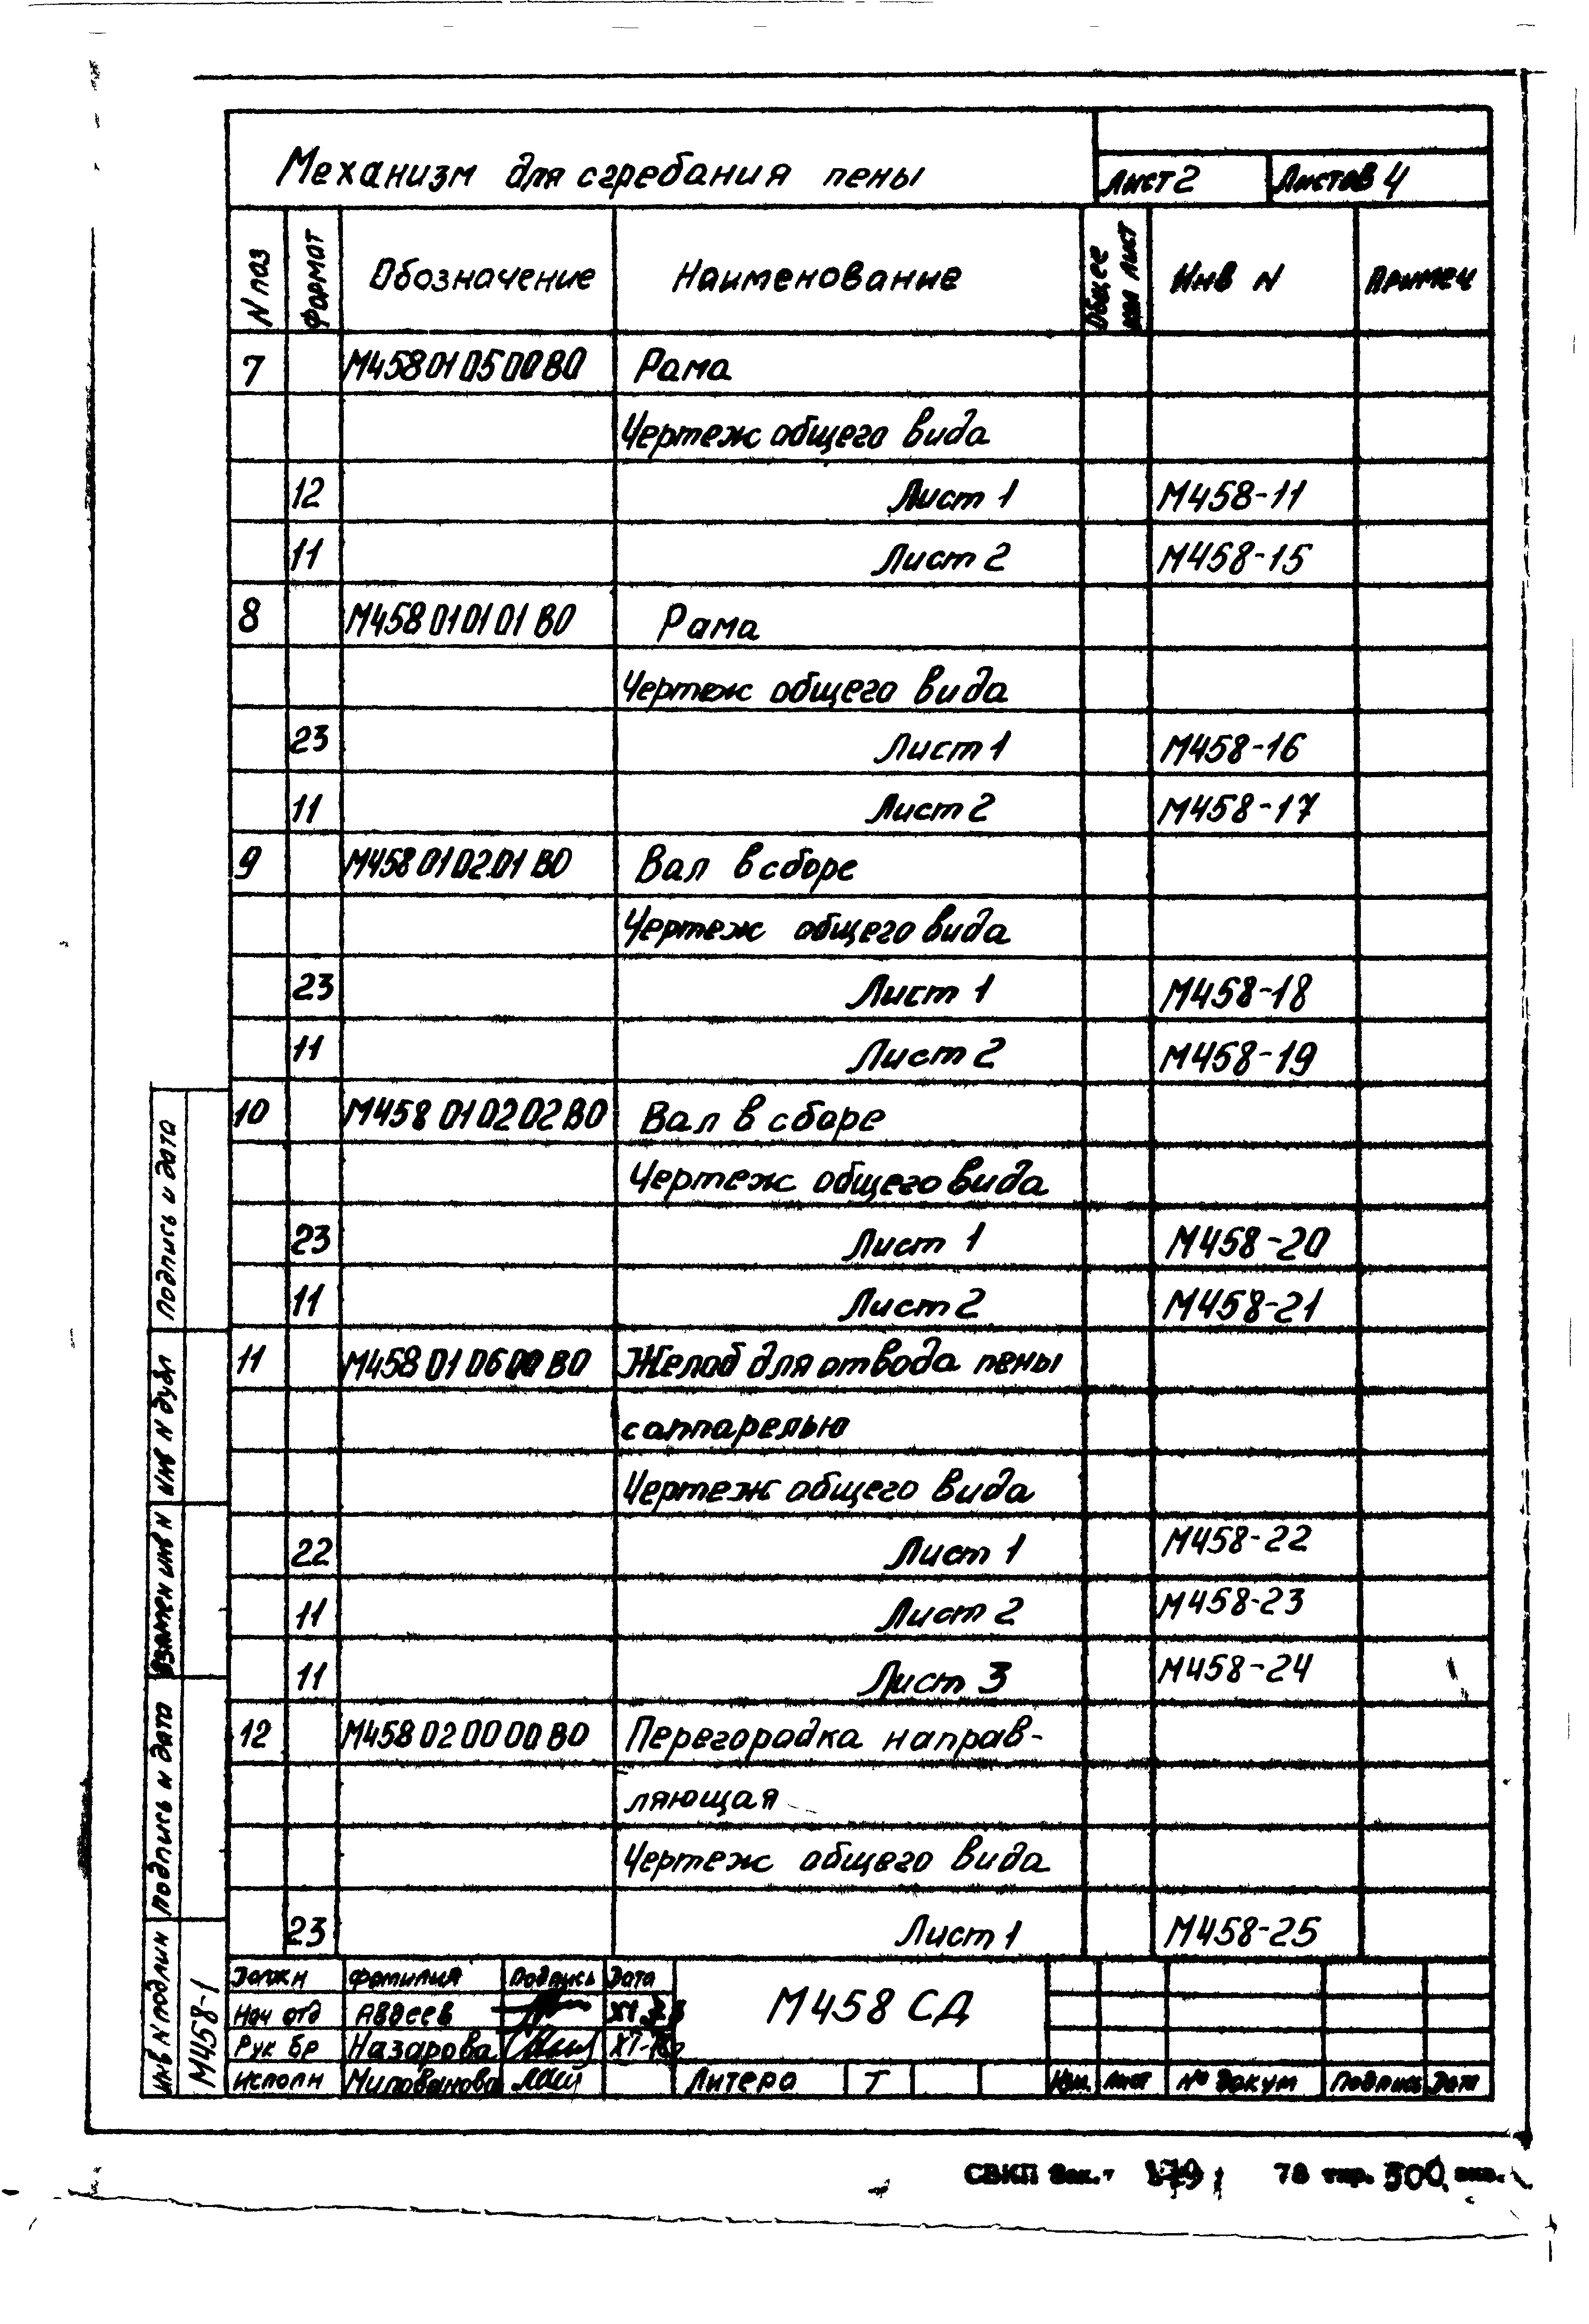 Механизм для сгребания пены
Лист 2 Листов 4
N поз Формат Обозначение Наименование Общее кол лист Инв N Примеч
7 М458 01 05 00 ВО Рама
Чертеж общего вида
12 Лист 1 М458-11
11 Лист 2 М458-15
8 М458 01 01 01 ВО Рама
Чертеж общего вида
23 Лист 1 М458-16
11 Лист 2 М458-17
9 М458 01 02 01 ВО Вал в сборе
Чертеж общего вида
23 Лист 1 М458-18
11 Лист 2 М458-19
10 М458 01 02 02 ВО Вал в сборе
Чертеж общего вида
23 Лист 1 М458-20
11 Лист 2 М458-21
11 М458 01 06 00 ВО Желоб для отвода пены
с аппарелью
Чертеж общего вида
22 Лист 1 М458-22
11 Лист 2 М458-23
11 Лист 3 М458-24
12 М458 02 00 00 ВО Перегородка направ-
ляющая
Чертеж общего вида
23 Лист 1 М458-25
Подпись и дата
Инв N дубл
Взамен инв N
Подпись и дата
Инв N подлин
М458-1
Должн Фамилия Подпись Дата
Нач отд Авдеев
Рук бр Назарова
Исполн Милованова
М458 СД
Литера Т
Изм. Лист № докум Подпись Дата
СВКП Зак. 78 тир. 500 экз.